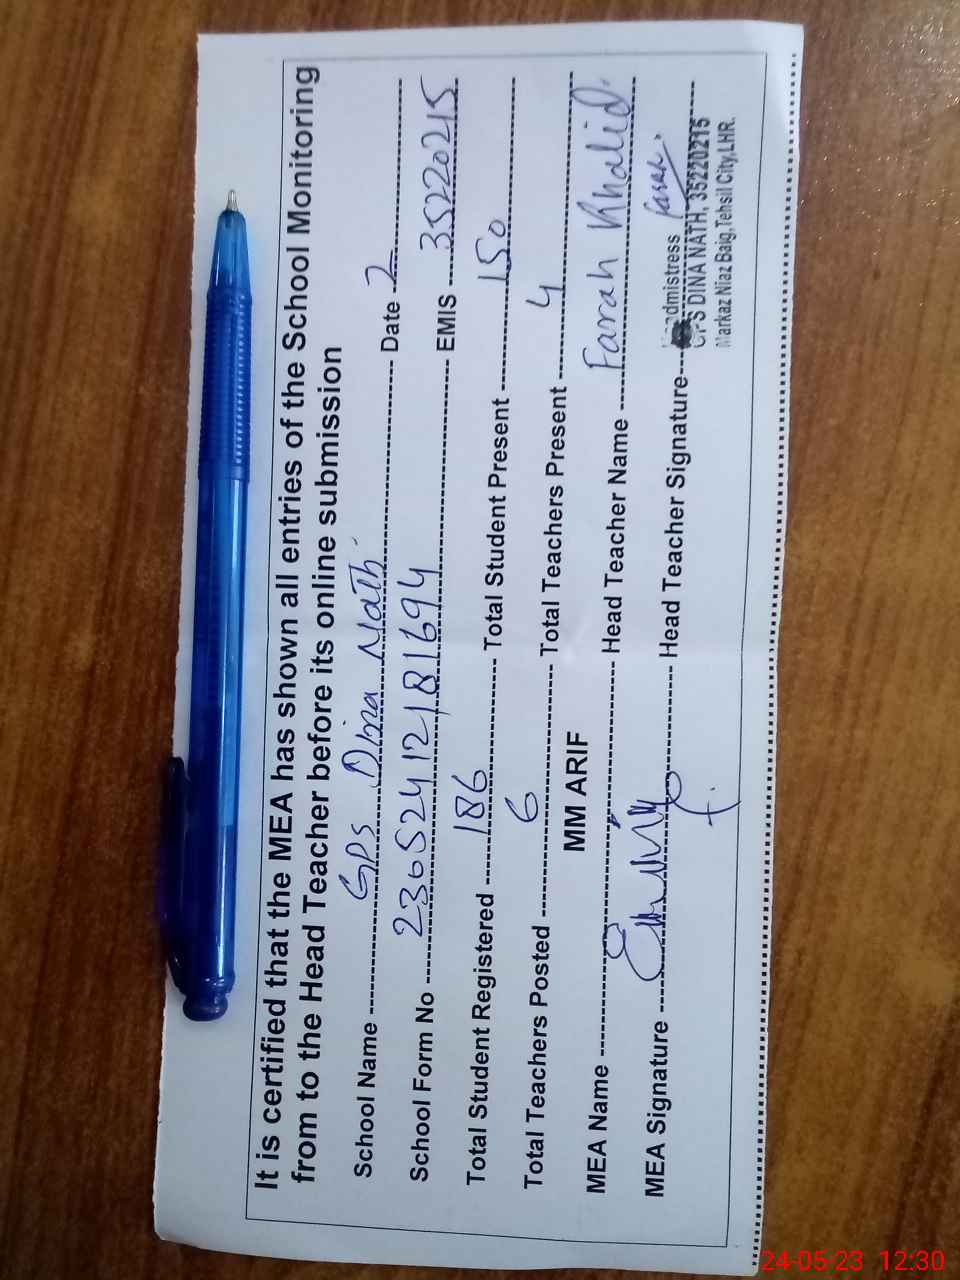 It is certified that the MEA has shown all entries of the School Monitoring
from to the Head Teacher before its online submission
School Name GPS Dina Nath Date 2
School Form No 23052412181694 EMIS 35220215
Total Student Registered 186 Total Student Present 150
Total Teachers Posted 6 Total Teachers Present 4
MEA Name MM ARIF Head Teacher Name Farah Khalid
MEA Signature Head Teacher Signature Farah
GPS DINA NATH, 35220215
Markaz Niaz Baig, Tehsil City, LHR.
24-05-23 12:30